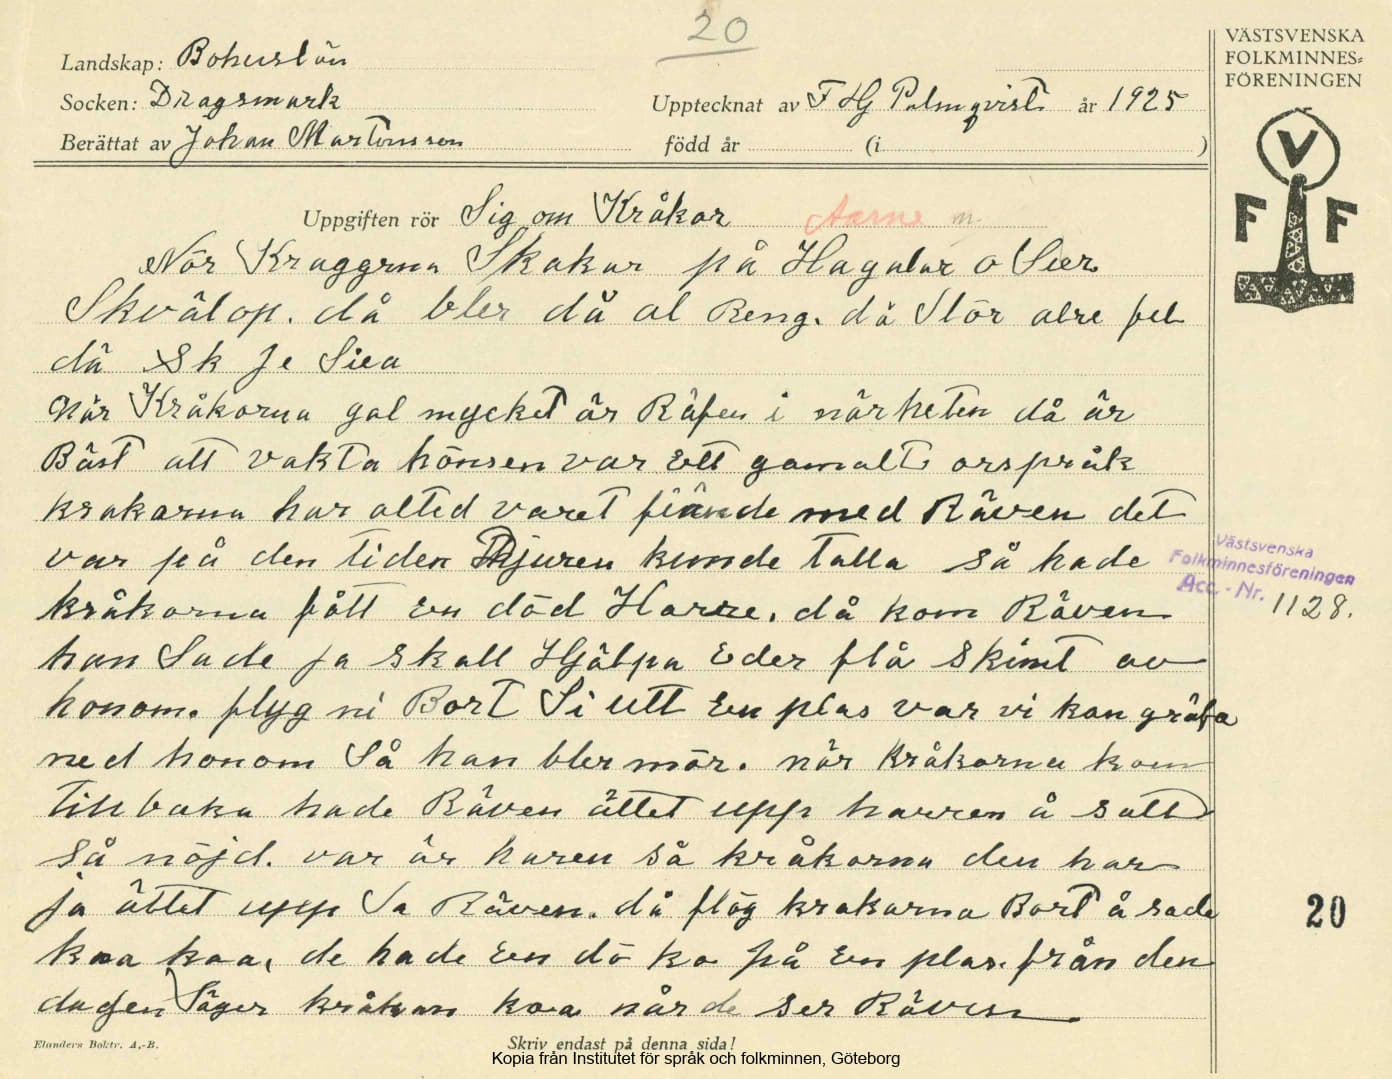 20
Landskap: Bohuslän
Socken: Dragsmark
Upptecknat av F HG Palmqvist år 1925
Berättat av Johan Martinsson
född år (i )
VÄSTSVENSKA
FOLKMINNES=
FÖRENINGEN
V
F F
Uppgiften rör Sig om Kråkor Aarne m.
Når Kraggrna Skakar på Hagalar o Sier
Skvälop. då bler då al Reng. då Slör alre fel
då Sk Je Siea
når Kråkorna gal mycket är Räfen i närheten då är
Bäst att vakta hönsen var Ett gamalt orspråk
krakarna har alted varet fiände med Räven det
var på den tiden Djuren kunde talla så hade
kråkorna fått en död Harre. då kom Räven
han Sade ja skall Hjälpa Eder flå skint av
honom. flyg ni Bort Si utt En plas var vi kan gräfa
ned honom Så han bler mör. når Kråkorna kom
tillbaka hade Räven ättet upp harren å satt
så nöjd. var är haren så kråkorna den har
ja ättet upp Sa Räven. då flög krakarna Bort å sade
kaa kaa, de hade En dö ko på En plas. från den
dagen Säger kråkan kaa når de ser Räven
Västsvenska
Folkminnesföreningen
Acc.-Nr. 1128.
20
Elanders Boktr. A.-B.
Skriv endast på denna sida!
Kopia från Institutet för språk och folkminnen, Göteborg